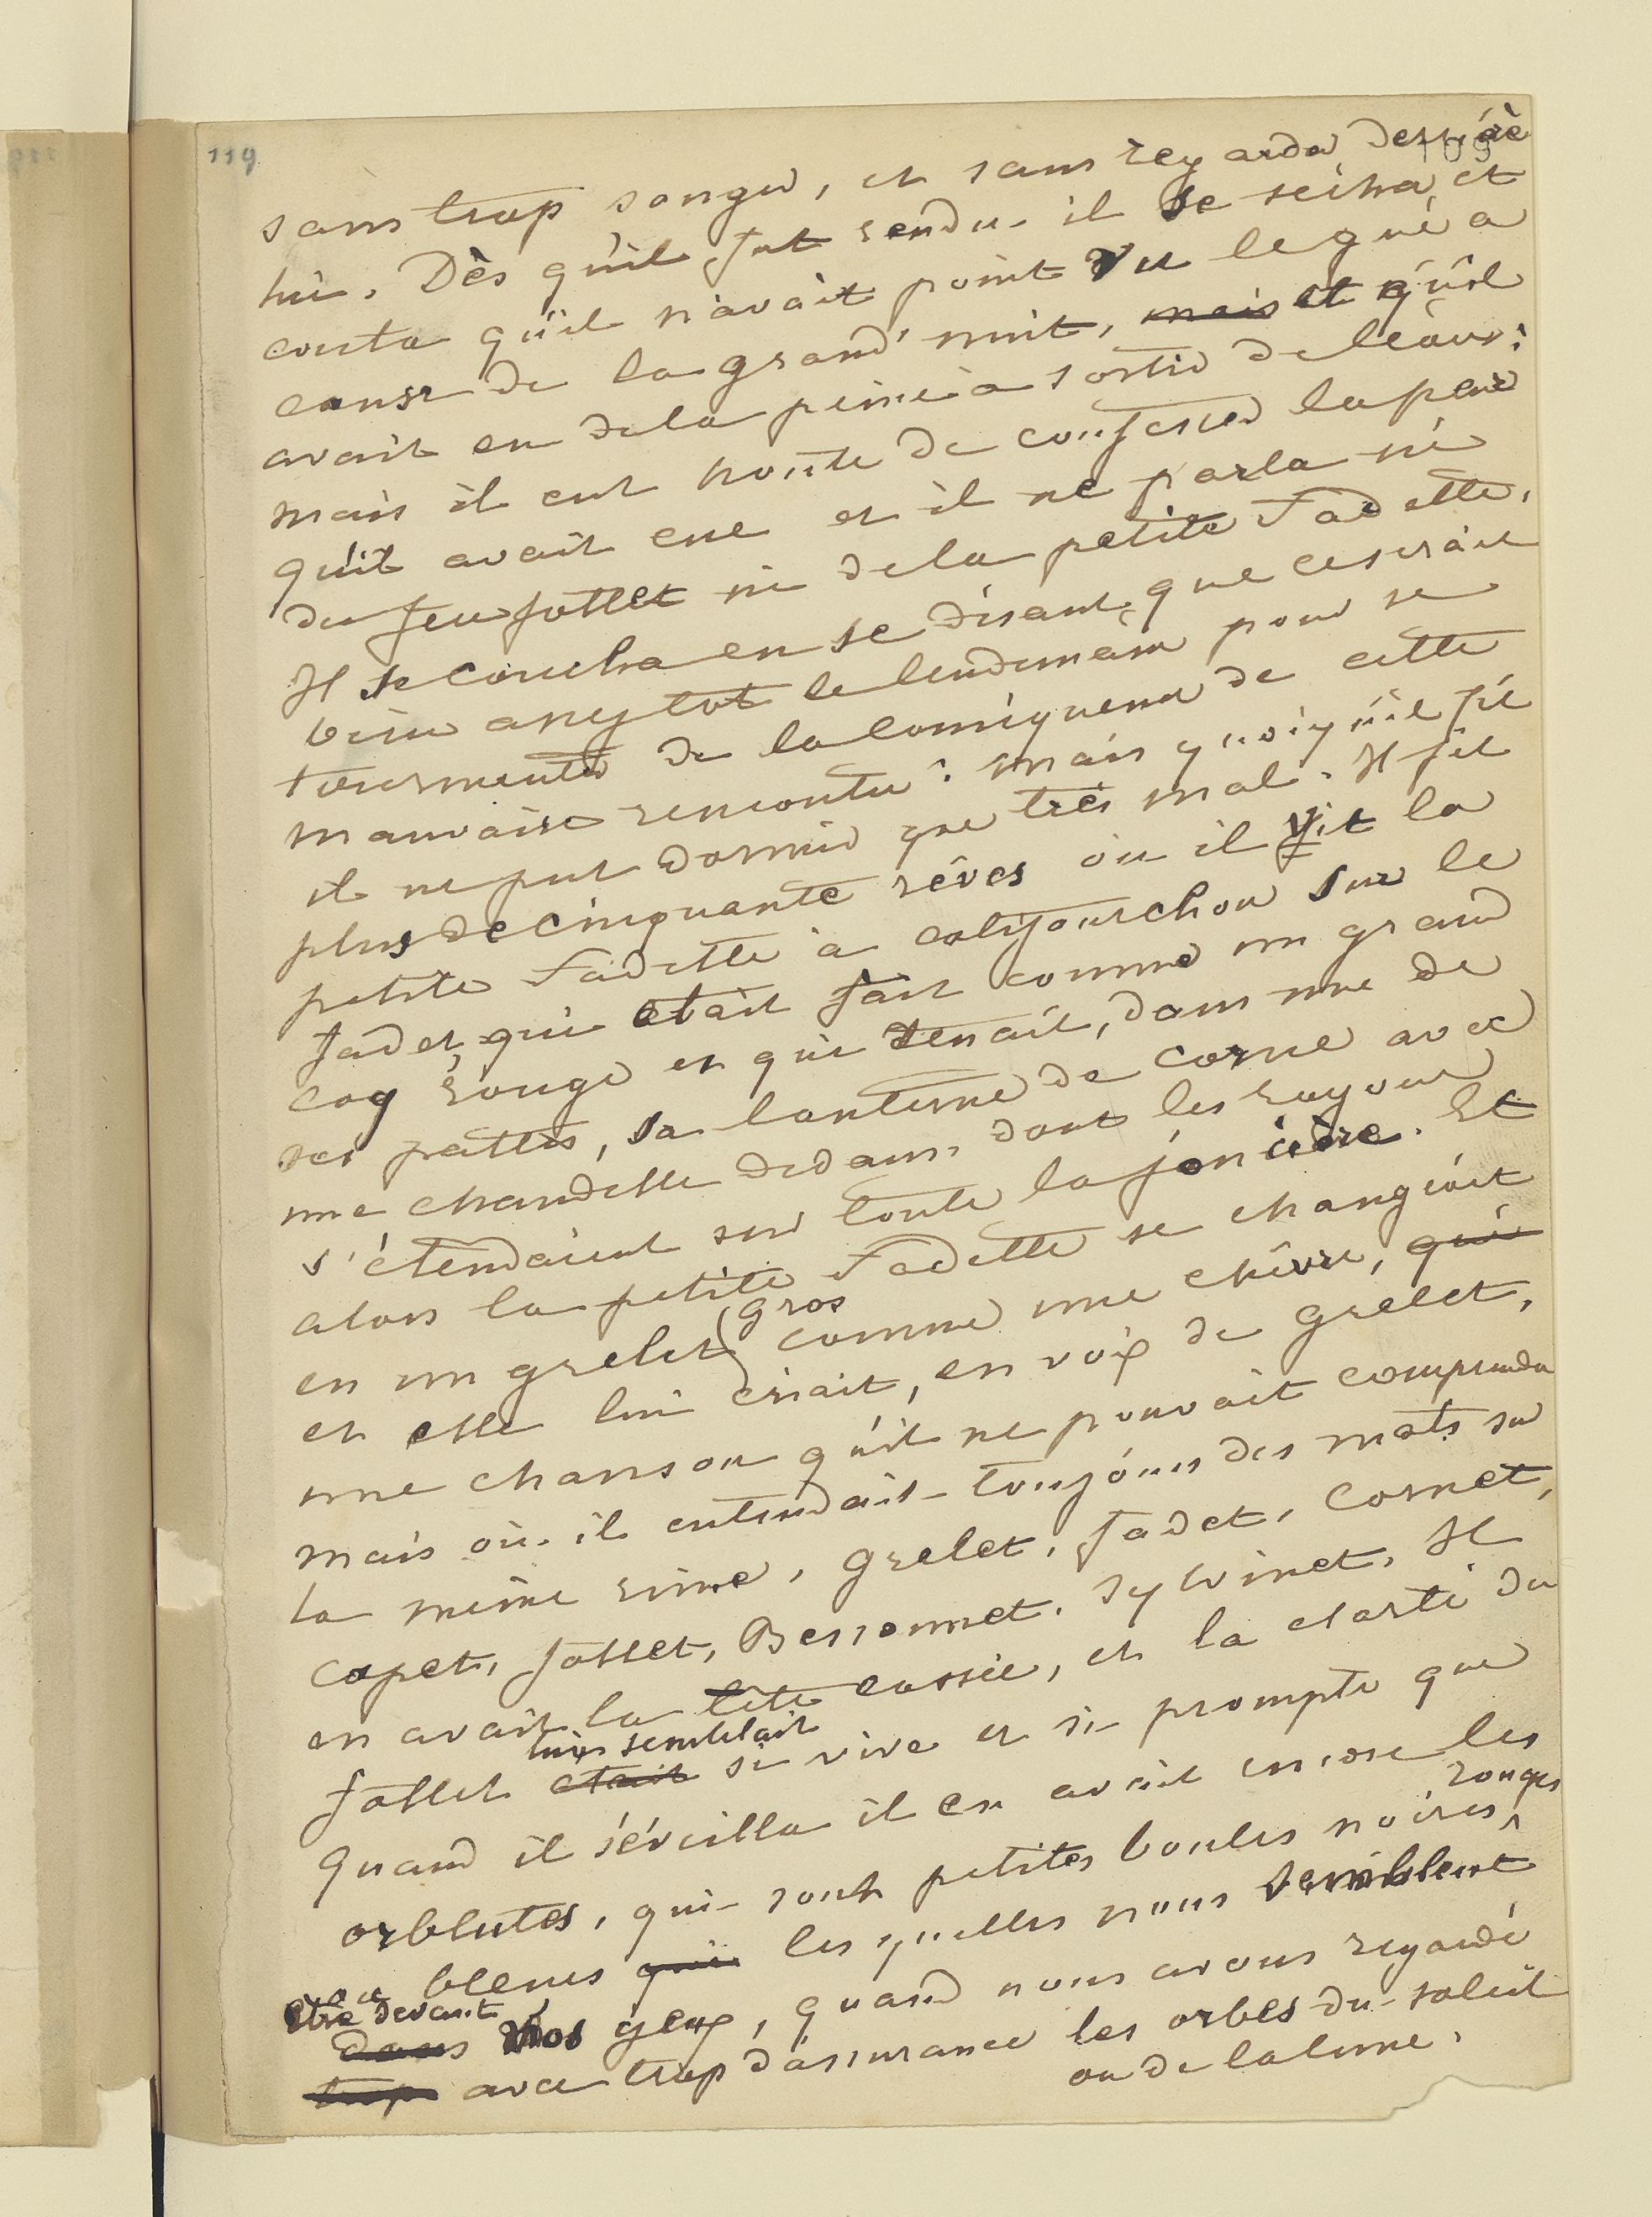 119
109
sans trop songer, et sans regarder derrière
lui. Dès qu'il fut rendu il se sécha, et
conta qu'il n'avait point vu le gué a
cause de la grand' nuit, mais et qu'il
avait eu de la peine à sortir de l'eau;
mais il eut honte de confesser la peur
qu'il avait eue et il ne parla ni
du feu follet ni de la petite Fadette.
Il se coucha en se disant que ce serait
bien assez tot le lendemain pour se
tourmenter de la conséquence de cette
mauvaise rencontre: mais quoiqu'il fit
il ne put dormir que très mal. Il fit
plus de cinquante rêves où il vit la
petite Fadette à califourchon sur le
fadet, qui était fait comme un grand
coq rouge et qui tenait, dans une de
ses pattes, sa lanterne de corne avec
une chandelle dedans dont les rayons
s'étendaient sur toute la joncière. Et
alors la petite Fadette se changeait
en un grelet gros comme une chèvre, qui
et elle lui criait, en voix de grelet,
une chanson qu'il ne pouvait comprendre
mais où il entendait toujours des mots sur
la même rime, grelet, fadet, cornet,
capet, follet, Bessonnet, Sylvinet. Il
en avait la tête cassée, et la clarté du
follet était lui semblait si vive et si prompte que
quand il s'éveilla il en avait encore les
orblutes, qui sont petites boules noires, rouges
ou bleues qui lesquelles nous semblent
être devant dans nos yeux, quand nous avons regardé
trop avec trop d'assurance les orbes du soleil
ou de la lune.